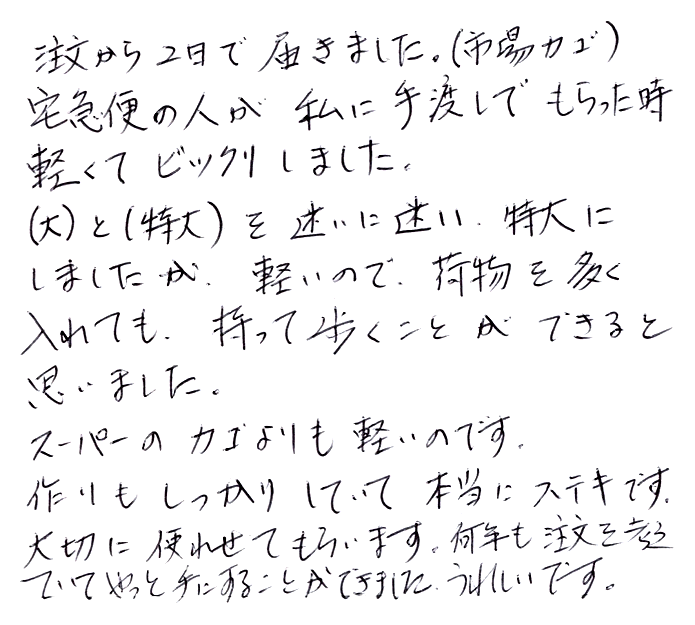 注文から2日で届きました。(市場カゴ)
宅急便の人が 私に手渡しで もらった時
軽くてビックリしました。
(大)と(特大)を迷いに迷い、特大に
しましたが、軽いので、荷物を多く
入れても、持って歩くことができると
思いました。
スーパーのカゴよりも軽いのです。
作りもしっかりしていて 本当にステキです。
大切に使わせてもらいます。何年も注文を考え
ていてやっと手にすることができました。うれしいです。